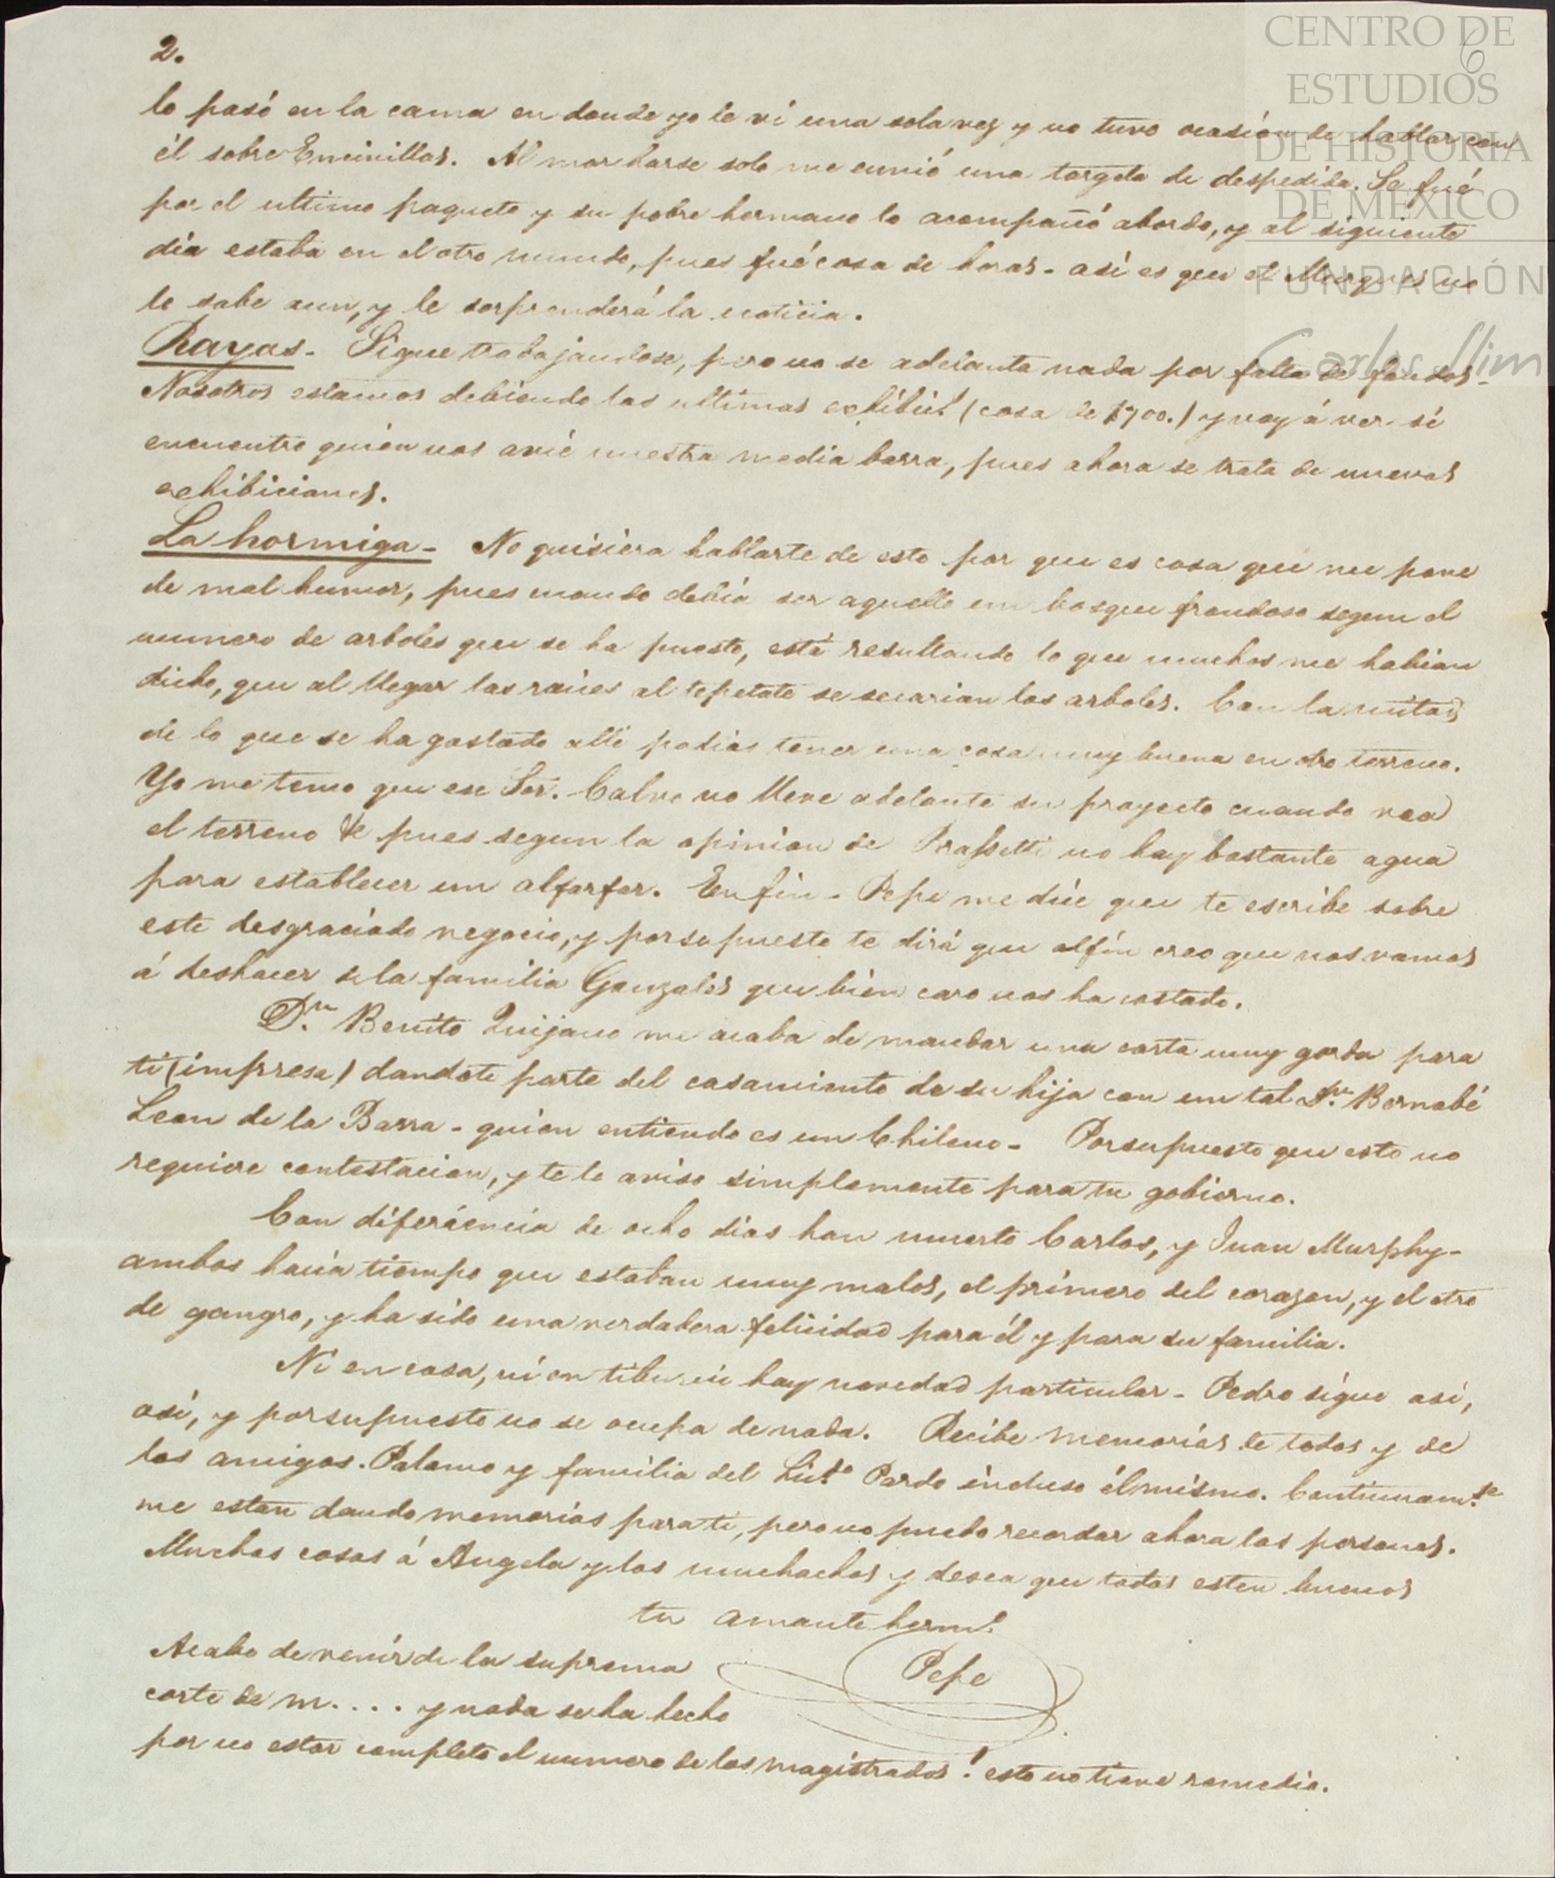 CENTRO DE
ESTUDIOS
DE HISTORIA
DE MÉXICO
FUNDACIÓN
Carlos Slim
6
2.
lo pasó en la cama en donde yo le ví una sola vez y no tuve ocasión de hablar con
él sobre Encinillas. Al marcharse solo me envió una targeta de despedida. Se fué
por el ultimo paquete y su pobre hermano lo acompañó abordo, y al siguiente
día estaba en el otro mundo, pues fué cosa de horas. así es que el Marques no
lo sabe aun, y le sorprenderá la noticia.
Rayas - Sigue trabajandose, pero no se adelanta nada por falta de fondos.
Nosotros estamos debiendo las ultimas exhibic.s (cosa de $700.) y voy á ver sí
encuentro quién nos avíe nuestra media barra, pues ahora se trata de nuevas
exhibiciones.
La hormiga - No quisiera hablarte de esto por que es cosa que me pone
de mal humor, pues cuando debía ser aquello un bosque frondoso segun el
numero de arboles que se ha puesto, está resultando lo que muchos me habian
dicho, que al llegar las raices al tepetate se secarian los arboles. Con la mitad
de lo que se ha gastado allí podias tener una cosa muy buena en otro terreno.
Yo me temo que ese Sor. Calvo no lleve adelante su proyecto cuando vea
el terreno &c pues segun la opinion de no hay bastante agua
para establecer un alfarfar. En fin - Pepe me díce que te escribe sobre
este desgraciado negocio, y porsupuesto te dirá que alfin creo que nos vamos
á deshacer de la familia Gonzales que bien caro nos ha costado.
Dn. Benito Quijano me acaba de mandar una carta muy gorda para
tí (impresa) dandote parte del casamiento de su hija con un tal Dn. Bernabé
Leon de la Barra - quién entiendo es un Chileno - Porsupuesto que esto no
requiere contestacion, y te lo aviso simplemente para tu gobierno.
Con diferiencia de ocho dias han muerto Carlos, y Juan Murphy -
ambos hacía tiempo que estaban muy malos, el prímero del corazon, y el otro
de gangre, y ha sido una verdadera felicidad para él y para su familia.
Ni en casa, ni en hay novedad particular - Pedro sigue así,
así, y porsupuesto no se ocupa de nada. Recibe memorias de todos y de
los amigos. Palomo y familia del Licdo. Pardo incluso él mismo. Continuamte.
me estan dando memorias para ti, pero no puedo recordar ahora las personas.
Muchas cosas á Angela y los muchachos y desea que todos esten buenos
tu amante hermo.
Pepe
Acabo de venir de la suprema
corte de m.... y nada se ha hecho
por no estar completo el numero de los magistrados! esto no tiene remedio.